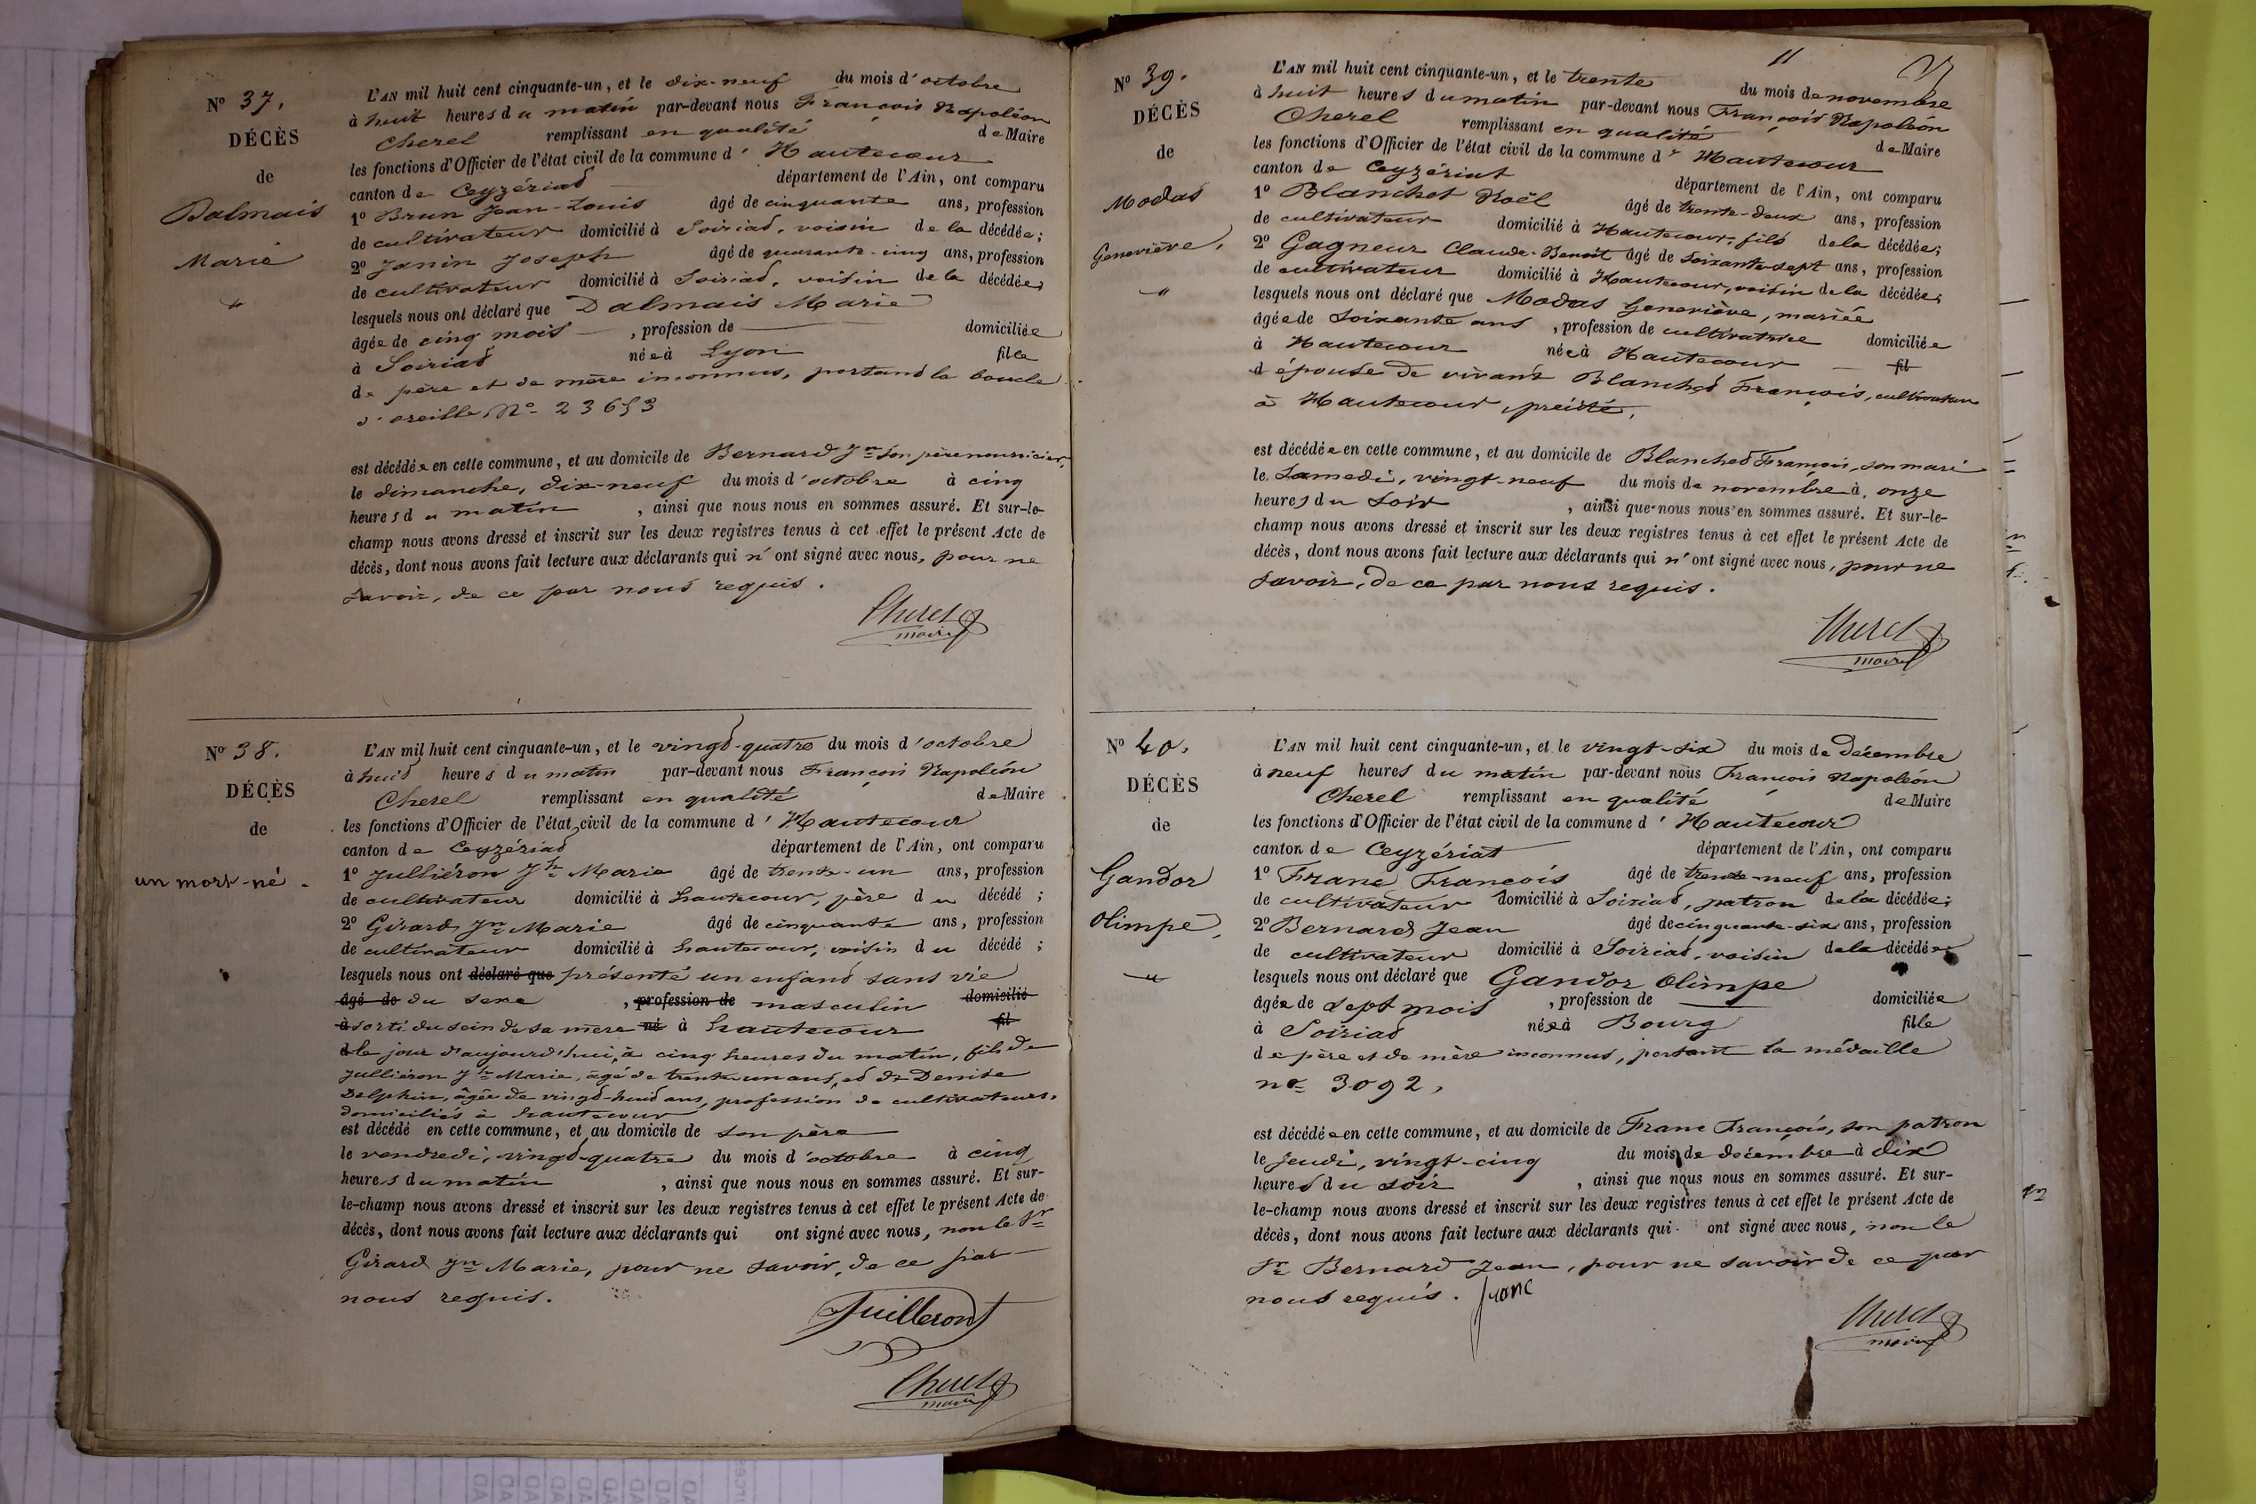 N° 37.
DÉCÈS
de
Dalmais
Marie
L'AN mil huit cent cinquante-un, et le dix-neuf du mois d'octobre
à huit heures du matin par-devant nous François Napoléon
Cherel remplissant en qualité de Maire
les fonctions d'Officier de l'état civil de la commune d' Hautecour
canton de Ceyzériat département de l'Ain, ont comparu
1° Brun Jean-Louis âgé de cinquante ans, profession
de cultivateur domicilié à Soiriat, voisin de la décédée;
2° Janin Joseph âgé de quarante-cinq ans, profession
de cultivateur domicilié à Soiriat, voisin de la décédée;
lesquels nous ont déclaré que Dalmais Marie
âgée de cinq mois, profession de domiciliée
à Soiriat née à Lyon fille
de père et de mère inconnus, portant la boucle
d'oreille N° 23653
est décédée en cette commune, et au domicile de Bernard Jn son père nourricier,
le dimanche, dix-neuf du mois d'octobre à cinq
heures du matin, ainsi que nous nous en sommes assuré. Et sur-le-
champ nous avons dressé et inscrit sur les deux registres tenus à cet effet le présent Acte de
décès, dont nous avons fait lecture aux déclarants qui n'ont signé avec nous, pour ne
savoir, de ce par nous requis.
Cherel
maire
N° 38.
DÉCÈS
de
un mort-né.
L'AN mil huit cent cinquante-un, et le vingt-quatre du mois d'octobre
à huit heures du matin par-devant nous François Napoléon
Cherel remplissant en qualité de Maire
les fonctions d'Officier de l'état civil de la commune d' Hautecour
canton de Ceyzériat département de l'Ain, ont comparu
1° Julliéron Jh Marie âgé de trente-un ans, profession
de cultivateur domicilié à hautecour, père du décédé;
2° Girard Jn Marie âgé de cinquante ans, profession
de cultivateur domicilié à hautecour, voisin du décédé;
lesquels nous ont déclaré que présenté un enfant sans vie
âgé de du sexe, profession de masculin domicilié
à sorti du sein de sa mère né à hautecour fil
d le jour d'aujourd'hui, à cinq heures du matin, fils de
Julliéron Jh Marie, âgé de trente un ans, et de Denise
Delphin, âgée de vingt-huit ans, profession de cultivateurs,
domiciliés à hautecour
est décédé en cette commune, et au domicile de son père
le vendredi, vingt-quatre du mois d'octobre à cinq
heures du matin, ainsi que nous nous en sommes assuré. Et sur-
le-champ nous avons dressé et inscrit sur les deux registres tenus à cet effet le présent Acte de
décès, dont nous avons fait lecture aux déclarants qui ont signé avec nous, non le Sr
Girard Jn Marie, pour ne savoir, de ce par
nous requis.
Juilleront
Cherel
maire
11
N° 39.
DÉCÈS
de
Modas
Geneviève,
L'AN mil huit cent cinquante-un, et le trente du mois de novembre
à huit heures du matin par-devant nous François Napoléon
Cherel remplissant en qualité de Maire
les fonctions d'Officier de l'état civil de la commune d' Hautecour
canton de Ceyzériat département de l'Ain, ont comparu
1° Blanchet Noël âgé de trente-deux ans, profession
de cultivateur domicilié à Hautecour, fils de la décédée;
2° Gagneur Claude-Benoît âgé de soixante-sept ans, profession
de cultivateur domicilié à Hautecour, voisin de la décédée;
lesquels nous ont déclaré que Modas Geneviève, mariée
âgée de soixante ans, profession de cultivatrice domiciliée
à Hautecour née à Hautecour fil
d épouse de vivant Blanchet François, cultivateur
à Hautecour, précité,
est décédée en cette commune, et au domicile de Blanchet François, son mari
le samedi, vingt-neuf du mois de novembre à onze
heures du soir, ainsi que nous nous en sommes assuré. Et sur-le-
champ nous avons dressé et inscrit sur les deux registres tenus à cet effet le présent Acte de
décès, dont nous avons fait lecture aux déclarants qui n'ont signé avec nous, pour ne
savoir, de ce par nous requis.
Cherel
maire
N° 40.
DÉCÈS
de
Gandor
Olimpe,
L'AN mil huit cent cinquante-un, et le vingt-six du mois de décembre
à neuf heures du matin par-devant nous François Napoléon
Cherel remplissant en qualité de Maire
les fonctions d'Officier de l'état civil de la commune d' Hautecour
canton de Ceyzériat département de l'Ain, ont comparu
1° Franc François âgé de trente-neuf ans, profession
de cultivateur domicilié à Soiriat, patron de la décédée;
2° Bernard Jean âgé de cinquante-six ans, profession
de cultivateur domicilié à Soiriat, voisin de la décédée;
lesquels nous ont déclaré que Gandor Olimpe
âgée de sept mois, profession de domiciliée
à Soiriat née à Bourg fille
de père et de mère inconnus, portant la médaille
no 3092,
est décédée en cette commune, et au domicile de Franc François, son patron
le jeudi, vingt-cinq du mois de décembre à dix
heures du soir, ainsi que nous nous en sommes assuré. Et sur-
le-champ nous avons dressé et inscrit sur les deux registres tenus à cet effet le présent Acte de
décès, dont nous avons fait lecture aux déclarants qui ont signé avec nous, non le
Sr Bernard Jean, pour ne savoir de ce par
nous requis. franc
Cherel
maire